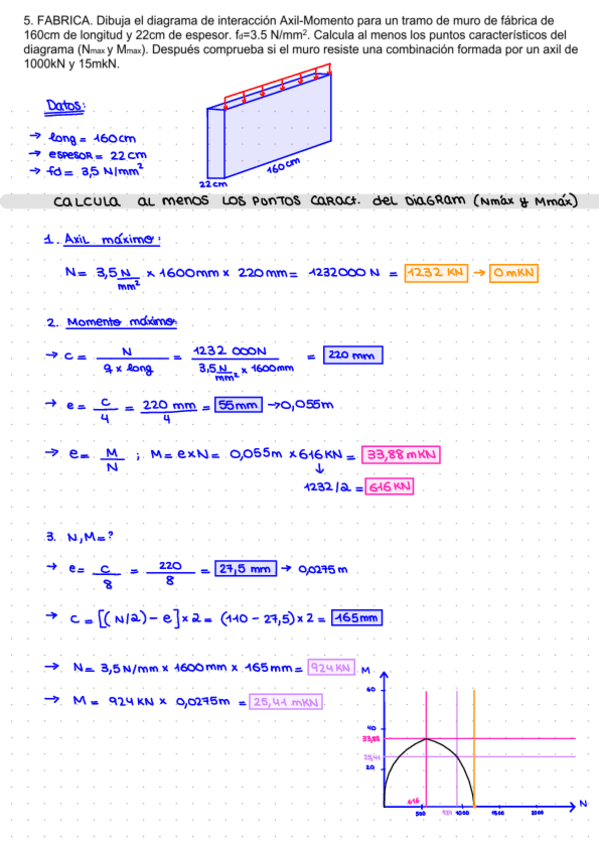 5. FABRICA. Dibuja el diagrama de interacción Axil-Momento para un tramo de muro de fábrica de
160cm de longitud y 22cm de espesor. fd=3.5 N/mm2. Calcula al menos los puntos característicos del
diagrama (Nmax y Mmax). Después comprueba si el muro resiste una combinación formada por un axil de
1000kN y 15mkN.
Datos:
→ long = 160cm
→ ESPESOR = 22cm
→ fd = 3,5 N/mm2
22cm
160cm
CALCULA AL menos LOS PUNTOS CARACT. del DIAGRAM (Nmáx y Mmáx)
1. Axil máximo:
N = 3,5 N/mm2 x 1600mm x 220mm = 1232000 N = 1232 KN → 0mKN
2. Momento máximo:
→ c = N / q x long = 1232 000N / 3,5 N/mm2 x 1600mm = 220 mm
→ e = c/4 = 220 mm/4 = 55mm → 0,055m
→ e = M/N ; M = e x N = 0,055m x 616KN = 33,88 mKN
↓
1232/2 = 616 KN
3. N, M = ?
→ e = c/8 = 220/8 = 27,5 mm → 0,0275m
→ c = [(N/2) - e] x 2 = (110 - 27,5) x 2 = 165mm
→ N = 3,5 N/mm x 1600mm x 165mm = 924KN
→ M = 924KN x 0,0275m = 25,41 mKN
M
60
40
33,88
25,41
20
616
924
500 1000 1500 2000
N